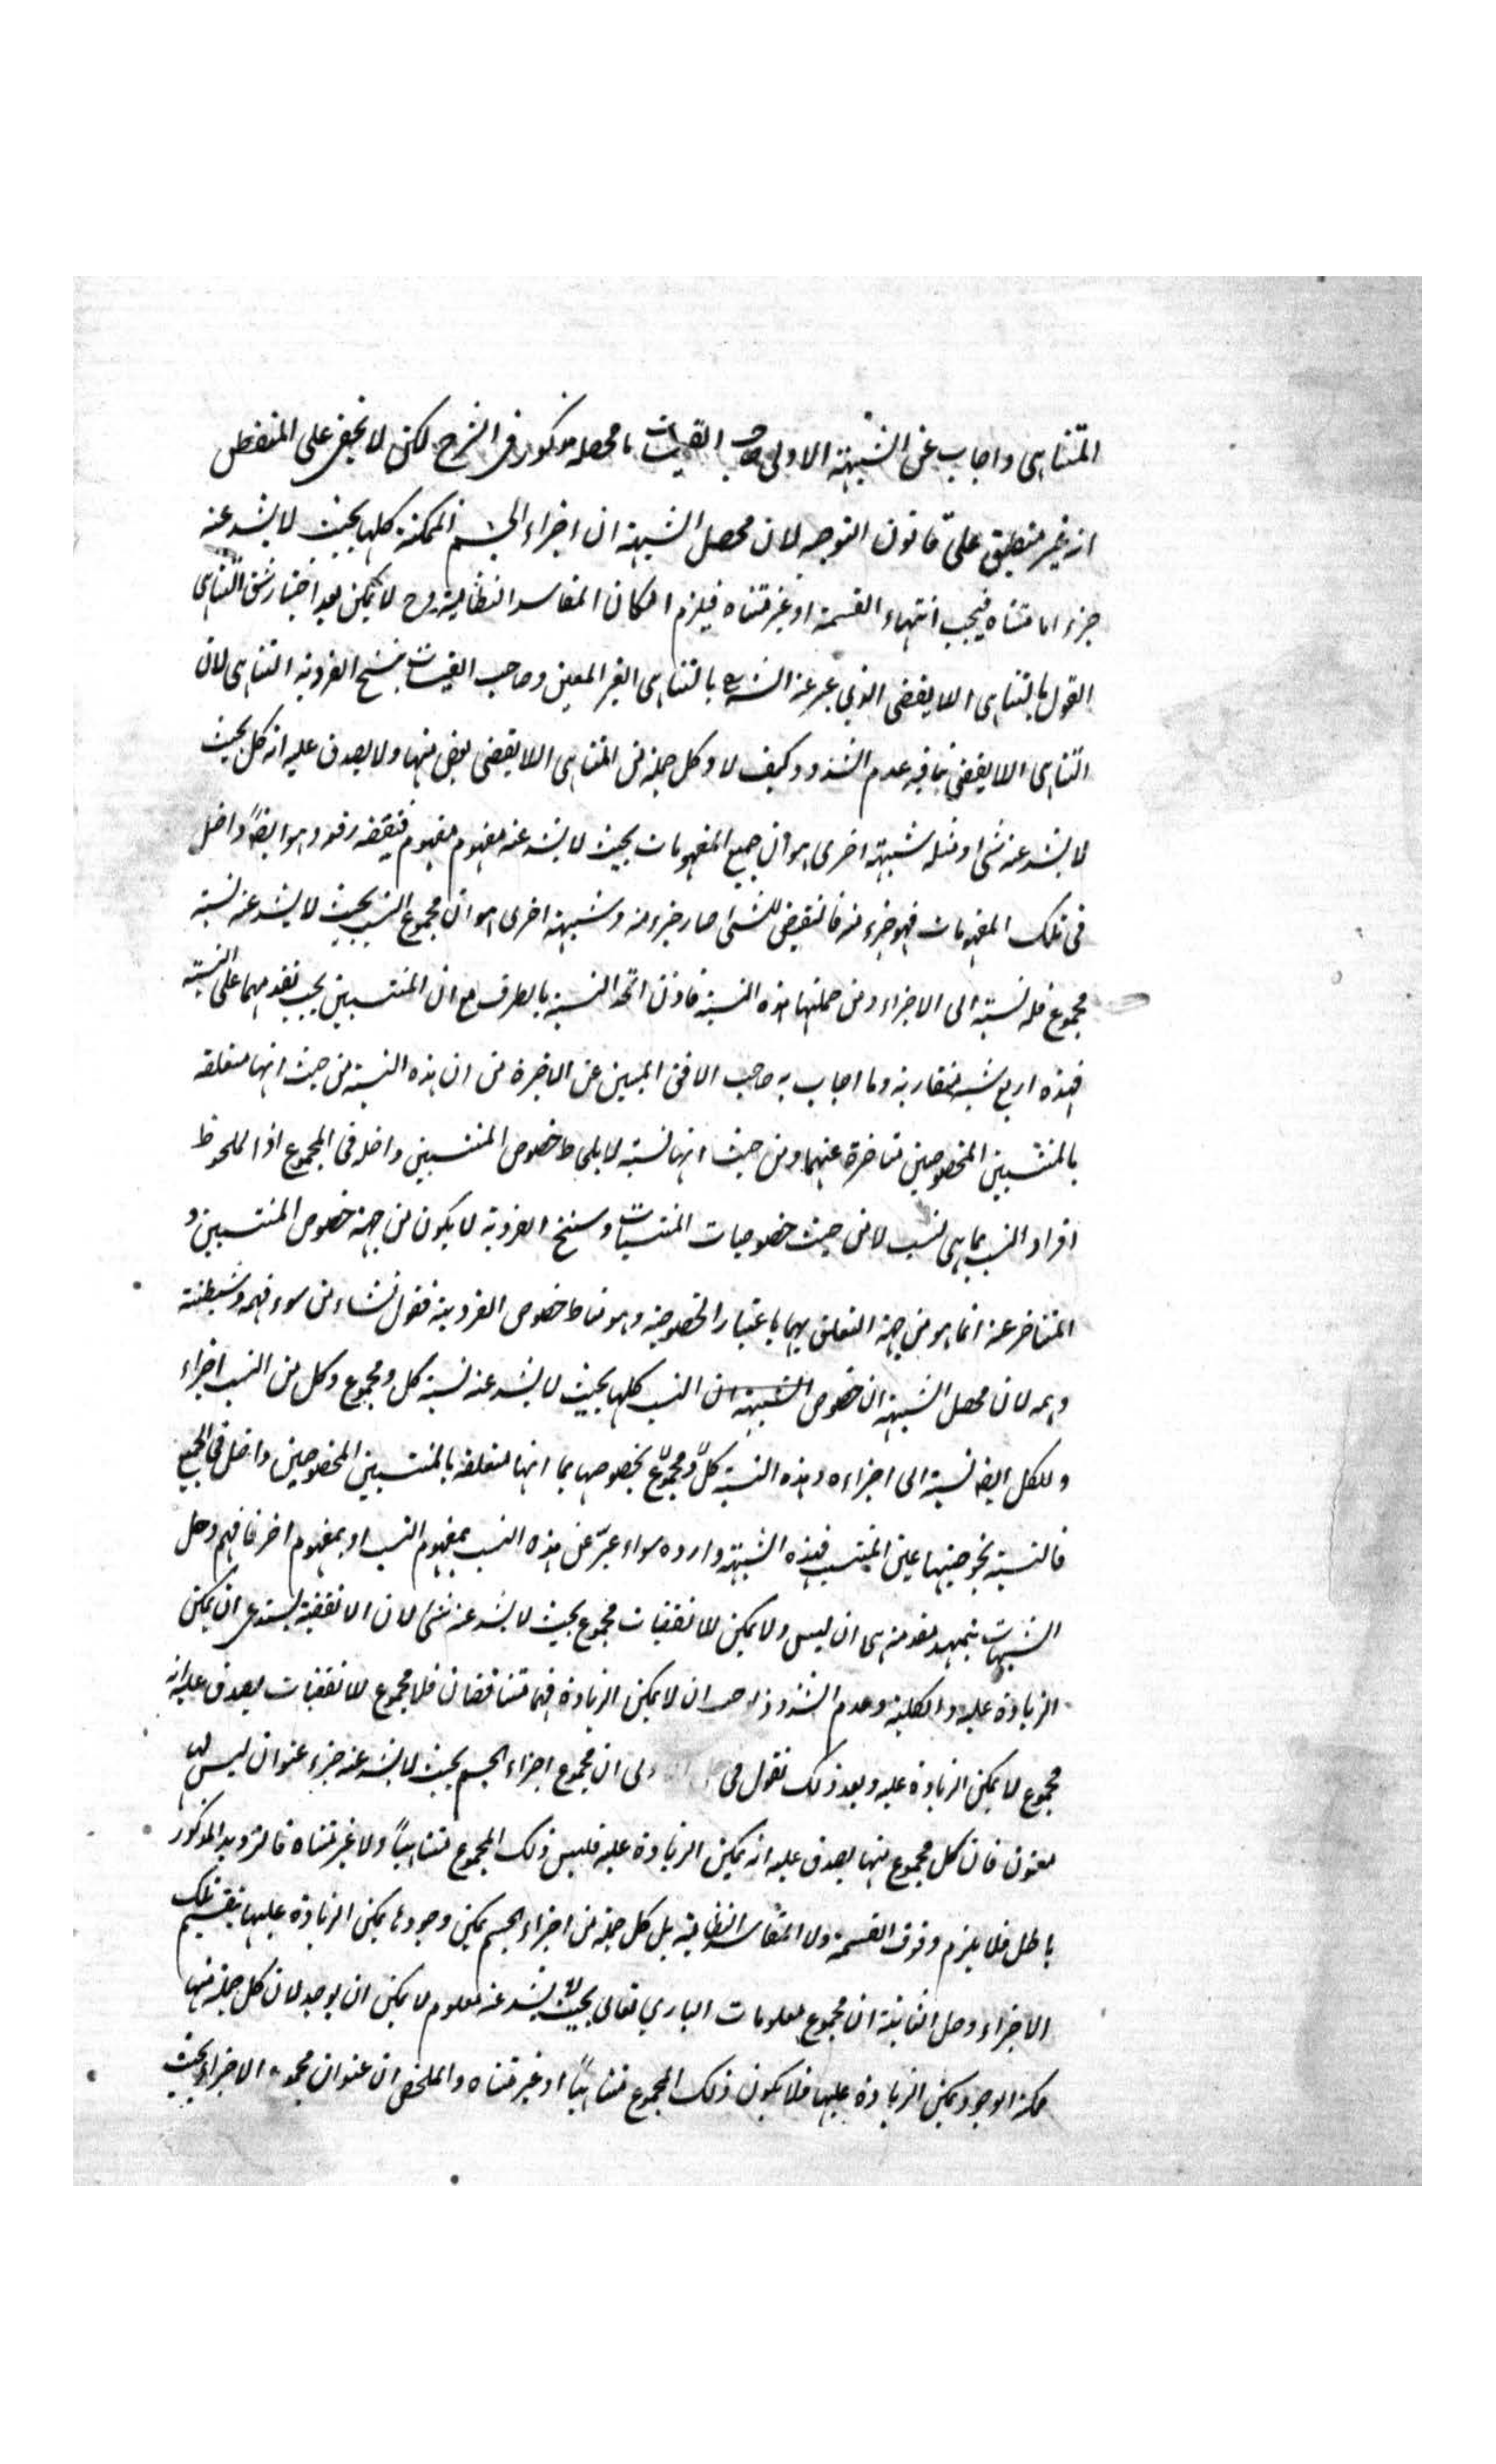 المتناهى واجاب عن الشبهة الاولى صاحب القبسات بما محصله مذكور فى الشرح لكن لا يخفى على المتفطن
انه غير منطبق على قانون التوجيه لان محصل الشبهة ان اجزاء الجسم الممكنة كلها بحيث لا يشذ عنه
جزء اما متناه فيجب انتهاء القسمة او غير متناه فيلزم امكان المفاسد النظامية وح لا يمكن بعد اختيار شق التناهى
القول بالتناهى اللايقفى الذي عبر عنه الشارح بالتناهى الغير المعين وصاحب القبسات بسنخ الفردية التناهى لان
التناهى اللايقفى ينافيه عدم الشذوذ وكيف لا وكل جملة من المتناهى اللايقفى بعض منها ولا يصدق عليه انه كل بحيث
لا يشذ عنه شئ ومثله شبهة اخرى هو ان جميع المفهومات بحيث لا يشذ عنه مفهوم مفهوم فنقيضه رفعه وهو ايضاً داخل
فى تلك المفهومات فهو جزء منه فالنقيض للشئ صار جزء منه وشبهة اخرى هو ان مجموع النسب بحيث لا يشذ عنه نسبة
مجموع فله نسبة الى الاجزاء ومن جملتها هذه النسبة فاذن اتحد النسبة بالطرف مع ان المنتسبين يجب تقدمهما على النسبة
فهذه اربع شبه متقاربة وما اجاب به صاحب الافق المبين عن الاخيرة من ان هذه النسبة من حيث انها متعلقة
بالمنتسبين المخصوصين متاخرة عنهما ومن حيث انها نسبة لا بلحاظ خصوص المنتسبين داخلة فى المجموع اذ الملحوظ
افراد النسب بما هى نسب لا من حيث خصوصيات المنتسبات وسنخ الفردية لا يكون من جهة خصوص المنتسبين و
المتاخر عنه انما هو من جهة التعلق بهما باعتبار الخصوصية وهو مناط خصوص الفردية فقول نشاء من سوء فهمه وشيطنة
وهمه لان محصل الشبهة ان خصوص الشبهة ان النسب كلها بحيث لا يشذ عنه نسبة كل ومجموع وكل من النسب اجزاء
وللكل ايضا نسبة الى اجزاءه وهذه النسبة كلّ ومجموعٌ بخصوصها بما انها متعلقة بالمنتسبين المخصوصين داخل فى الجميع
فالنسبة بخصوصيتها عين المنتسب فهذه الشبهة وارده سواء عبّر عن هذه النسب بمفهوم النسب او بمفهوم اخر فافهم وحل
الشبهات بتمهيد مقدمة هى ان ليس ولا يمكن للانقفيات مجموع بحيث لا يشذ عنه شئ لان اللانقفية يستدعى ان يمكن
الزيادة عليه والكلية وعدم الشذوذ ان لا يمكن الزيادة فهما متناقضان فلا مجموع للانقفيات يصدق عليه انه
مجموع لا يمكن الزيادة عليه وبعد ذلك نقول فى ان مجموع اجزاء الجسم بحيث لا يشذ عنه جزء عنوان ليس له
معنون فان كل مجموع منها يصدق عليه انه يمكن الزيادة عليه فليس ذلك المجموع متناهياً ولا غير متناه فالترديد المذكور
باطل فلا يلزم وقوف القسمة ولا المفاسد النظامية بل كل جملة من اجزاء الجسم يمكن وجودها يمكن الزيادة عليها بتقسيم تلك
الاجزاء وحل الثانية ان مجموع معلومات الباري تعالى بحيث لا يشذ عنه معلوم لا يمكن ان يوجد لان كل جملة منها
ممكنة الوجود يمكن الزيادة عليها فلا يكون ذلك المجموع متناهياً او غير متناه والملخص ان عنوان مجموع الاجزاء بحيث